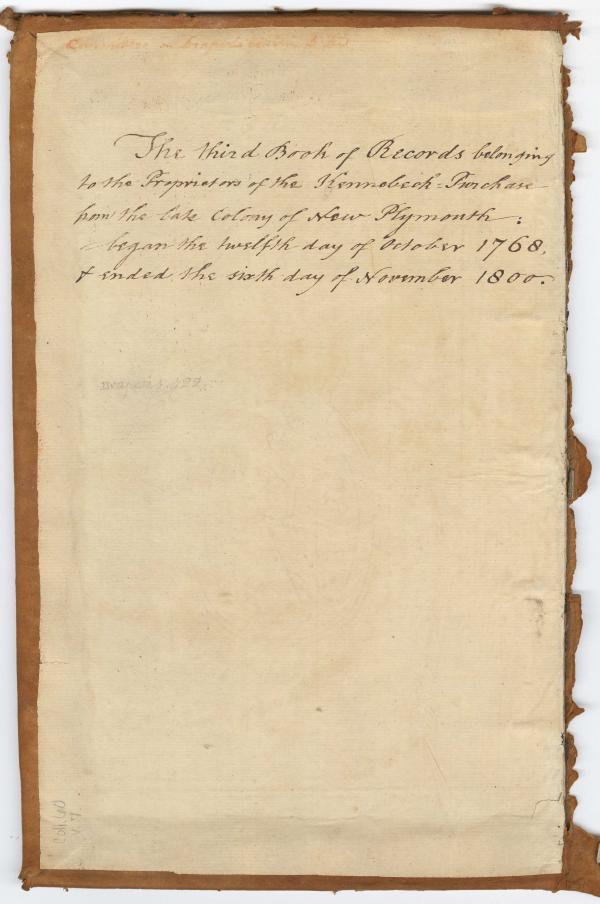 The third Book of Records belonging
to the Proprietors of the Kennebeck=Purchase
from the late Colony of New Plymouth:
began the twelfth day of October 1768,
& ended the sixth day of November 1800.
Coll. 60
v. 7